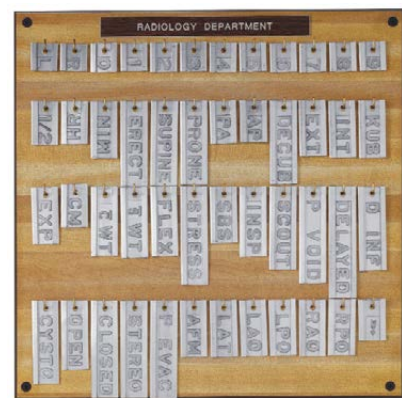 RADIOLOGY DEPARTMENT
L R 0 1 2 3 4 5 6 7 8 9
1/2 HR MIN ERECT SUPINE PRONE PA AP DECUB EXT INT KUB
EXP CM FLEX STRESS SBS INSP SCOUT P VOID DELAYED D INF
CYSTO OPEN CLOSED STEREO P EVAC AFM LAT LAO LPO RAO RPO